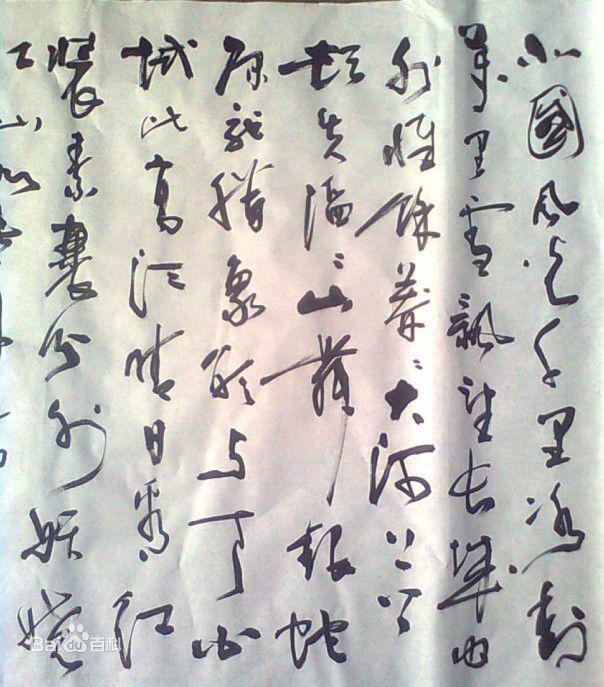 北國风光千里冰封
萬里雪飄望长城内
外惟餘莽々大河上下
顿失滔々山舞银蛇
原驰腊象欲与天公
试比高须晴日看红
裝素裹分外妖娆
山如
Baidu百科